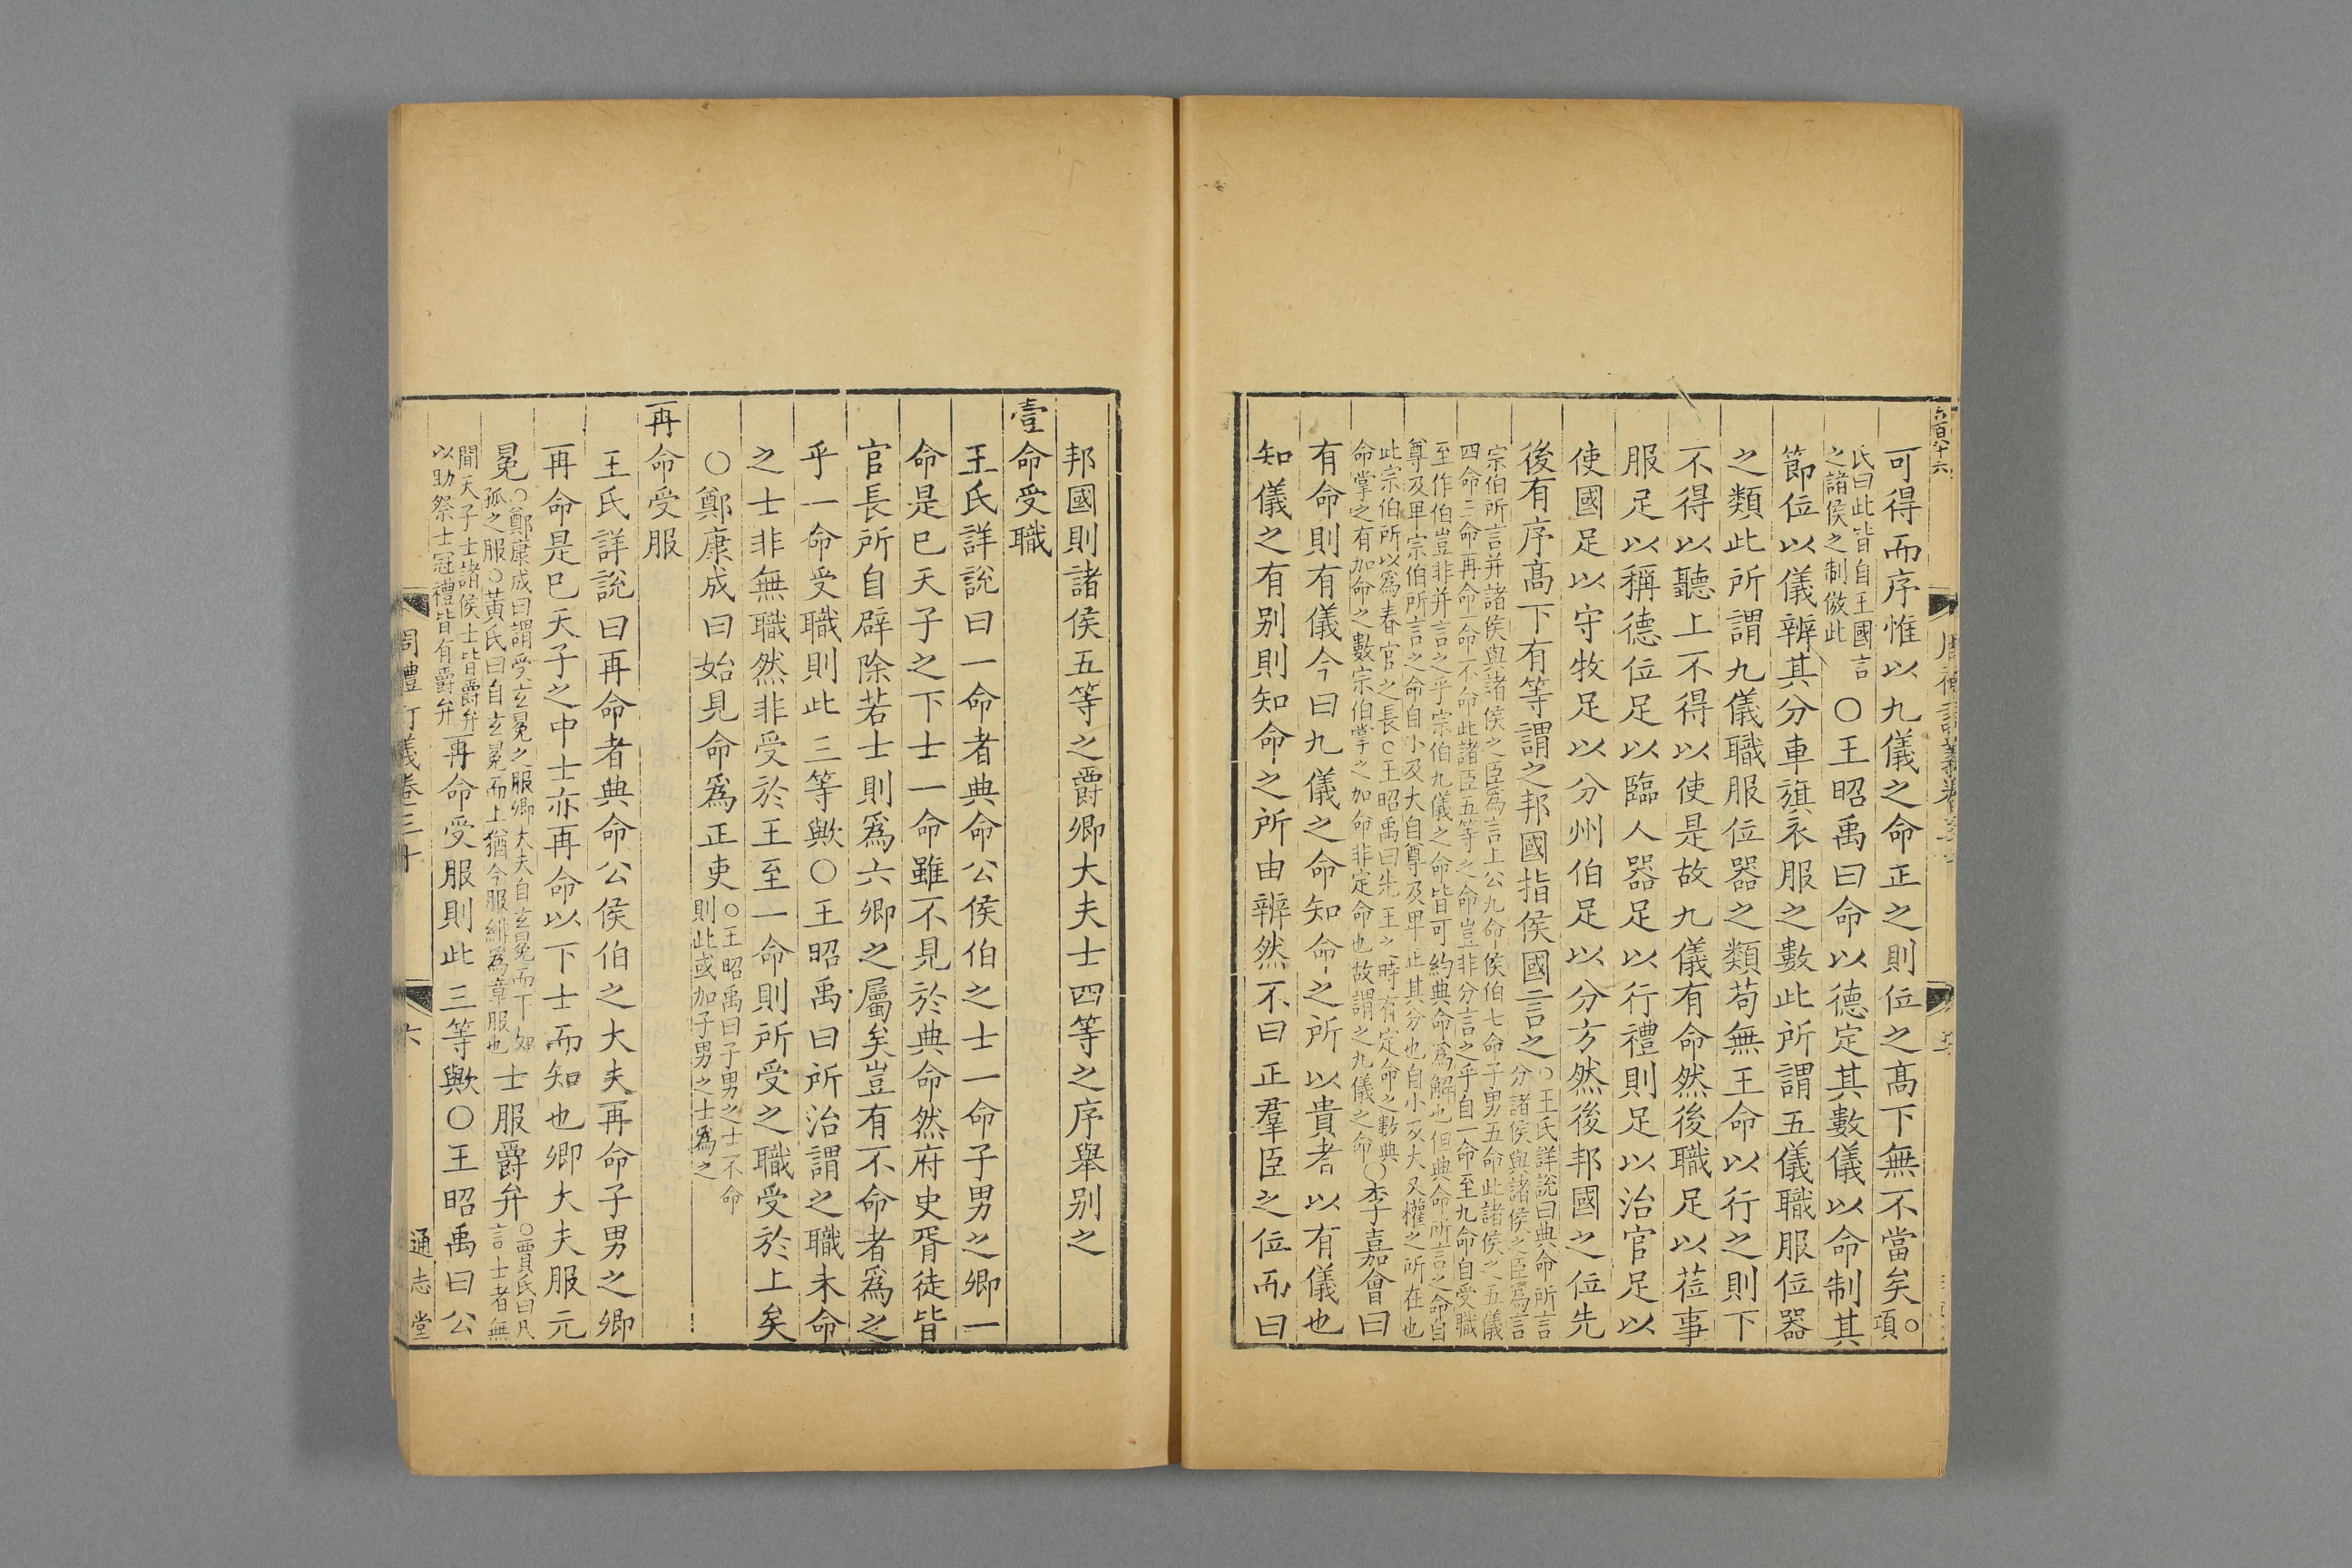 六百八十六
可得而序惟以九儀之命正之則位之髙下無不當矣○項
氏曰此皆自王國言
之諸侯之制倣此
○王昭禹曰命以德定其數儀以命制其
節位以儀辨其分車旗衣服之數此所謂五儀職服位器
之類此所謂九儀職服位器之類苟無王命以行之則下
不得以聽上不得以使是故九儀有命然後職足以莅事
服足以稱德位足以臨人器足以行禮則足以治官足以
使國足以守牧足以分州伯足以分方然後邦國之位先
後有序髙下有等謂之邦國指侯國言之
○王氏詳説曰典命所言
分諸侯與諸侯之臣爲言
宗伯所言并諸侯與諸侯之臣爲言上公九命侯伯七命子男五命此諸侯之五儀
四命三命再命一命不命此諸臣五等之命豈非分言之乎自一命至九命自受職
至作伯豈非并言之乎宗伯九儀之命皆可約典命爲解也但典命所言之命自
尊及卑宗伯所言之命自小及大自尊及卑正其分也自小及大又權之所在也
此宗伯所以爲春官之長○王昭禹曰先王之時有定命之數典
命掌之有加命之數宗伯掌之加命非定命也故謂之九儀之命
○李嘉會曰
有命則有儀今曰九儀之命知命之所以貴者以有儀也
知儀之有别則知命之所由辨然不曰正羣臣之位而曰
邦國則諸侯五等之爵卿大夫士四等之序舉别之
壹命受職
王氏詳說曰一命者典命公侯伯之士一命子男之卿一
命是巳天子之下士一命雖不見於典命然府史胥徒皆
官長所自辟除若士則爲六卿之屬矣豈有不命者爲之
乎一命受職則此三等歟○王昭禹曰所治謂之職未命
之士非無職然非受於王至一命則所受之職受於上矣
○鄭康成曰始見命爲正吏
○王昭禹曰子男之士不命
則此或加子男之士爲之
再命受服
王氏詳說曰再命者典命公侯伯之大夫再命子男之卿
再命是巳天子之中士亦再命以下士而知也卿大夫服元
冕
○鄭康成曰謂受玄冕之服卿大夫自玄冕而下如
孤之服○黃氏曰自玄冕而上猶今服緋爲章服也
士服爵弁
○賈氏曰凡
言士者無
間天子士諸侯士皆爵弁
以助祭士冠禮皆有爵弁
再命受服則此三等歟○王昭禹曰公
周禮訂義卷三十
六
通志堂